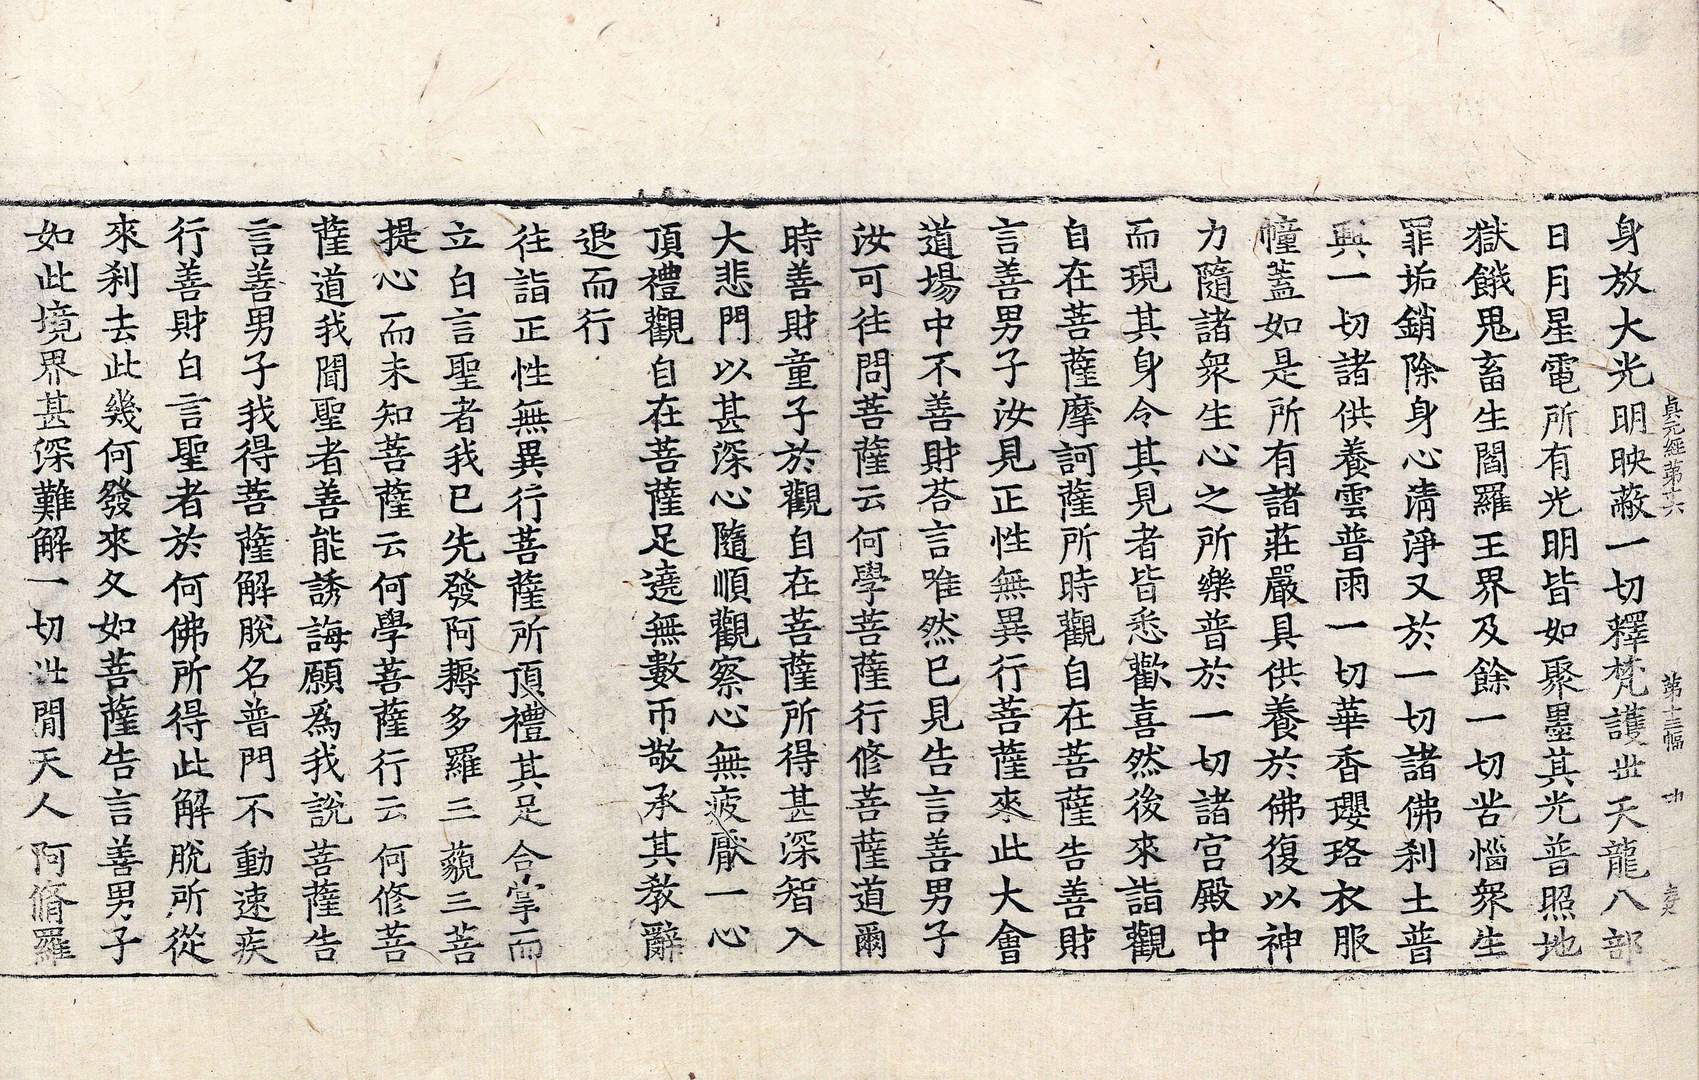 貞元經第十六　第十三幅　功
身放大光明映蔽一切釋梵護世天龍八部
日月星電所有光明皆如聚墨其光普照地
獄餓鬼畜生閻羅王界及餘一切苦惱衆生
罪垢銷除身心清淨又於一切諸佛刹土普
興一切諸供養雲普雨一切華香瓔珞衣服
幢蓋如是所有諸莊嚴具供養於佛復以神
力隨諸衆生心之所樂普於一切諸宮殿中
而現其身令其見者皆悉歡喜然後來詣觀
自在菩薩摩訶薩所時觀自在菩薩告善財
言善男子汝見正性無異行菩薩來此大會
道場中不善財荅言唯然已見告言善男子
汝可往問菩薩云何學菩薩行修菩薩道爾
時善財童子於觀自在菩薩所得甚深智入
大悲門以甚深心隨順觀察心無疲厭一心
頂禮觀自在菩薩足遶無數帀敬承其教辭
退而行
往詣正性無異行菩薩所頂禮其足合掌而
立白言聖者我已先發阿耨多羅三藐三菩
提心而未知菩薩云何學菩薩行云何修菩
薩道我聞聖者善能誘誨願爲我說菩薩告
言善男子我得菩薩解脫名普門不動速疾
行善財白言聖者於何佛所得此解脫所從
來刹去此幾何發來久如菩薩告言善男子
如此境界甚深難解一切世間天人阿脩羅